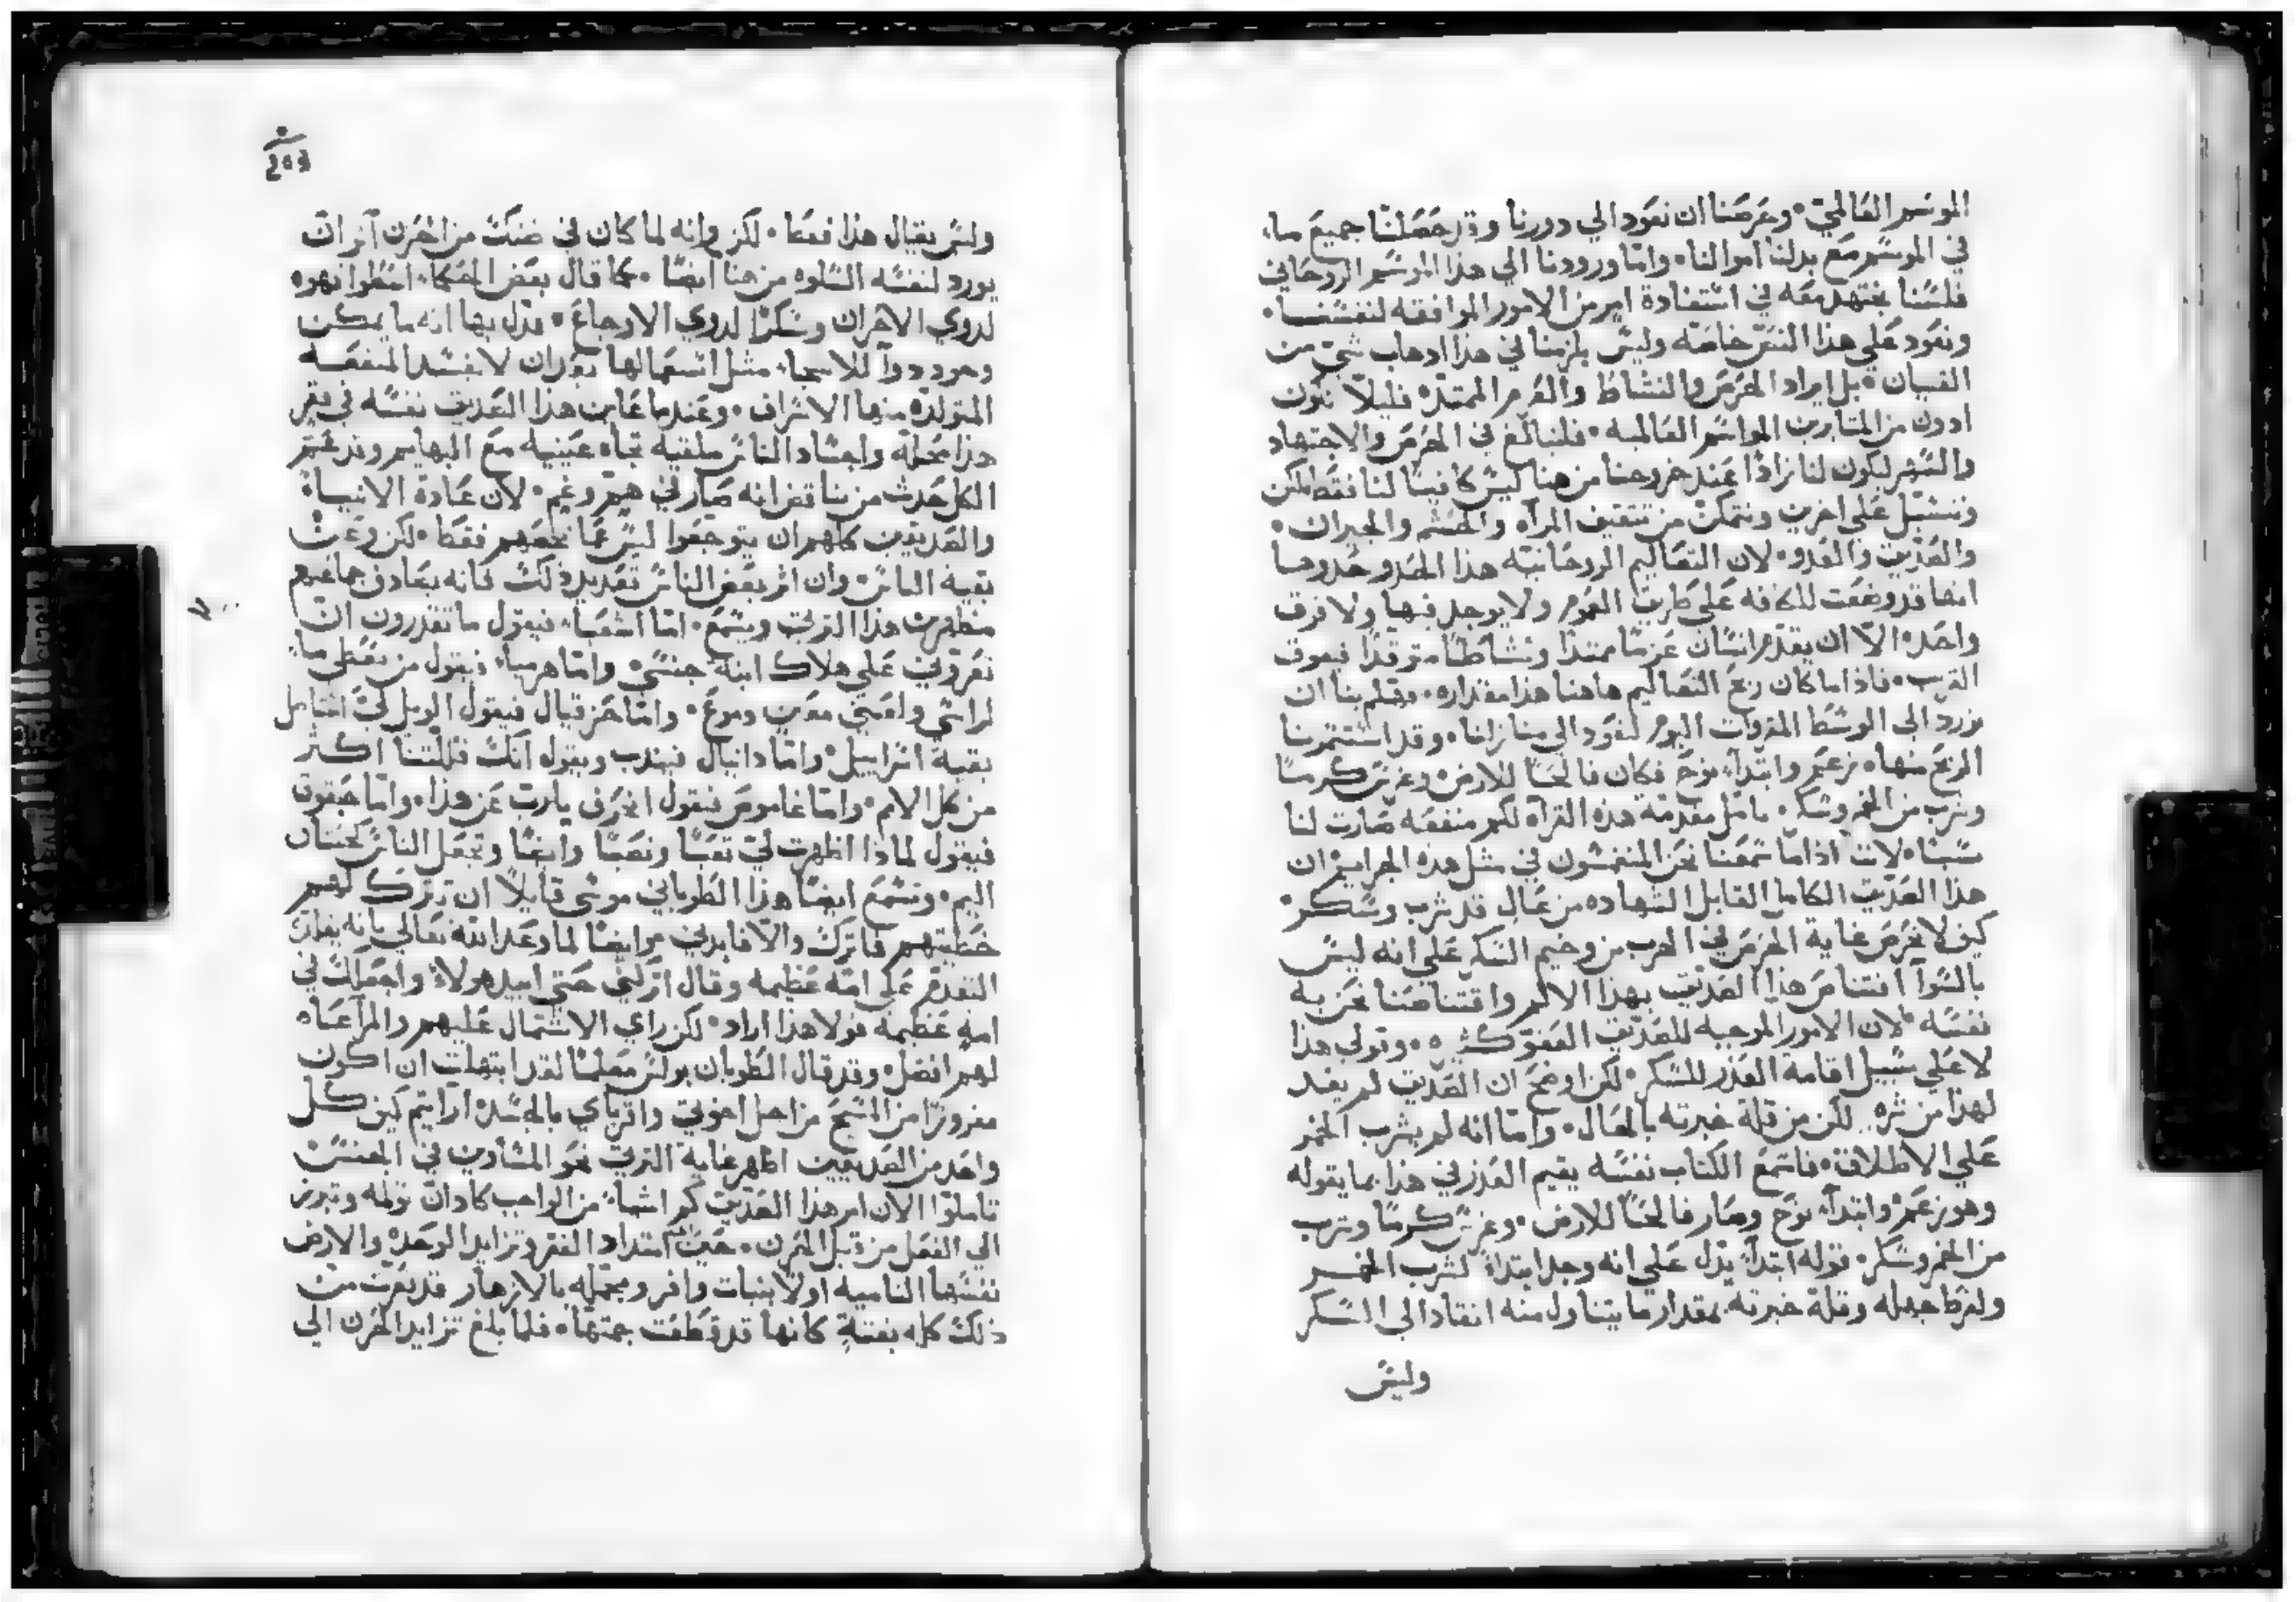 الموسم العالمي. وعرضنا ان نعود الي دورنا وقد حصلنا جميع ما
في الموسم مع بدلنا اموالنا. واما ورودنا الي هذا الموسم الروحاني
فلسنا نجتهد معه في استفادة امر من الامور الموافقه لنفسنا.
ونعود علي هذا النص خاصه وليس يلزمنا في هذا ادهاب شي من
القنيان. بل ايراد الحرص والنشاط والعزم الممتد. فليلا نكون
ادون من المتابرين المواسم العالميه. فلنبالغ في الحرص والاجتهاد
والسهر ليكون لنا زادًا عند خروجنا من هنا ليس كافيًا لنا فقط لكن
ونشتمل علي اخرين ونتمكن من تتقيف المراه والحشم والجيران.
والصديق والعدو. لان التعاليم الروحانيه هذا الحد وحدودها
انها قد وضعت للكافه علي طريق العموم ولا يوجد فيها ولا فرق
واحده الا ان يقدم انسان عزمًا ممتدا ونشاطًا متوقدًا فيفوق
القريب. فاذا ما كان ربح التعاليم هاهنا هذا مقداره. فهلم بنا ان
نورد الي الوسط المقروات اليوم لنعود الي منازلنا. وقد استتمرنا
الربح منها. زعم وابتدآء نوح فكان فالحًا للارض وغرس كرمًا
وشرب من الخمر وسكر. تامل مقدمة هذه القرآه لكم منفعه صارت لنا
سببًا. لان اذا ما سمعنا نحن المنغمسون في مثل هذه الجرايم ان
هذا الصديق الكامل القابل الشهاده من عال قد شرب وسكر.
كيف لا نحرص غاية الحرص في الهرب من وخيم السكر علي انه ليس
بالسوآ اقتناص هذا الصديق بهذا الالم واقتناصنا نحن به
نفسه. لان الامور الموجبه للصديق العفو كثيره. وقولي هذا
لا علي سبيل اقامة العذر للسكر. لكن اوضح ان الصديق لم يفسد
لهذا من شره لكن من قلة خبرته بالحال. واما انه لم يشرب الخمر
علي الاطلاق. فاسمع الكتاب نفسه يقيم العذر في هذا بما يقوله
وهو زعم وابتدآ نوح وصار فالحًا للارض. وغرس كرمًا وشرب
من الخمر وسكر. قوله ابتدآ يدل علي انه وجد ابتدآ لشرب الخمر
ولفرط جهله وقلة خبرته بمقدار ما يتناول منه انقاد الي السكر
وليس
وليس يقال هذا فقط. لكن وانه لما كان في ضنك من الحزن آثر ان
يورد لنفسه السلوه من هنا ايضًا. كما قال بعض الحكما. اعطوا قهوه
لذوي الاحزان وسكرًا لذوي الاوجاع. فدل بها انه ما يمكن
وجود دوآ للاسجا مثل استعمالها بعد ان لا يفسد المنفعه
المتولده منها الاسراف. وعندما عاين هذا الصديق نفسه في فقر
هذا محله واجساد الناس ملقيه تجاه عينيه مع البهايم وقد عمم
الكل حدث من بنا قض انه صار في هم وغم. لان عادة الانبيا
والصديقين كلهم ان يتوجعوا ليس عما يخصهم فقط. لكن وعن
بقية الناس. وان اثر بعض الناس تعديد ذلك فانه يصادف جماعتهم
مظهرين هذا التوجع ويسمع. اما اشعيا فيقول ما تقدرون ان
تعزوني علي هلاك ابنة جنسي واما هرميا. فيقول من يعطي ما
لراسي ولعيني معين دموع. واما حزقيال فيقول الويل لي اتبيد
بقية اسراييل. واما دانيال فيندب ويقول انك قللتنا اكثر
من كل الامم. واما عاموص فيقول اتحزن يارب عن هذا. واما حبقوق
فيقول لماذا اظهرت لي تعبًا ونصبًا وايضًا وتجعل الناس كحيتان
اليم. ونسمع ايضًا هذا الطوباني موسي قايلًا ان تترك لهم
خطيتهم فاترك والا فابدني مرايضًا لما وعد الله تعالي بانه يملك
التقدم علي امه عظيمه وقال اتركني حتي ابيد هولاء واجعلك في
امه عظيمه فولا هذا اراد. لكن راي الاشتمال عليهم والمراعاه
لهم افضل. وقد قال الطوبان بولس معلمنا لقد ابتهلت ان اكون
مفروزًا من المسيح من اجل اخوتي واقرباي بالجسد. ارايتم كيف كل
واحد من الصديقين اظهر غاية التوجع نحو المشاركين في الجنس
تاملوا الان امر هذا الصديق كم اسما. من الواجب كاد ان تولمه وتبرز
الي الفعل من قبل الحزن. حيث امتداد القفر وتزايد الوحده والارض
نفسها الناميه اولا بنبات وافر ومجمله بالازهار قد تعرت من
ذلك كله بغتةٍ كانها قد قطعت جمتها. فلما بلغ تزايد الحزن الي